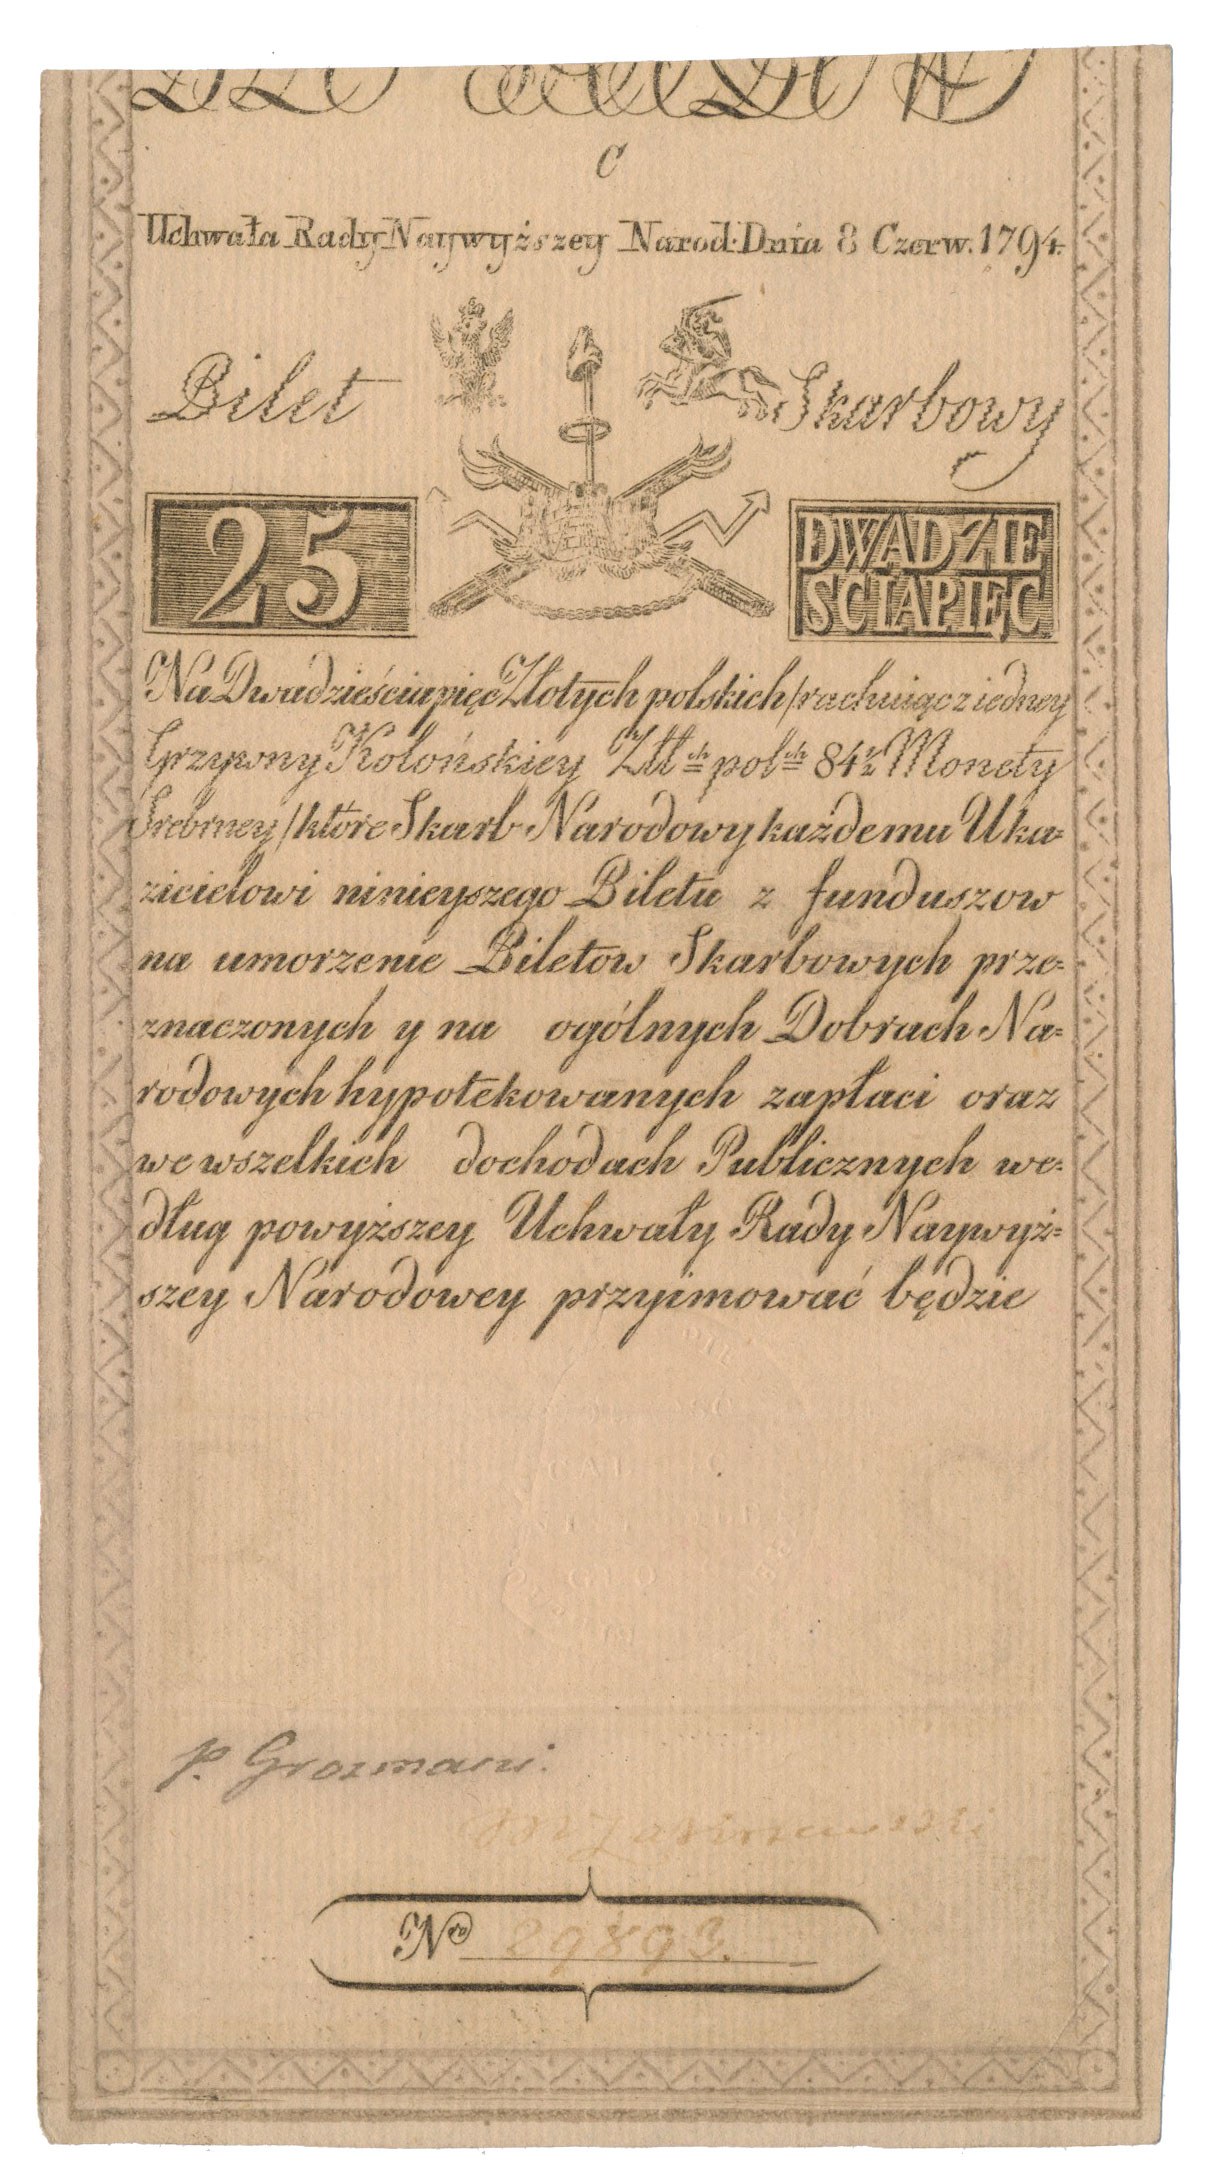 C
Uchwała Rady Naywyższey Narod: Dnia 8 Czerw. 1794.
Bilet Skarbowy
25 DWADZIE
SCIAPIĘC
Na Dwadzieściapięć Złotych polskich /rachuiąc z iedney
Grzywny Kolońskiey Złł ch pol ch 84 ½ Monety
Srebrney/ które Skarb Narodowy każdemu Uka=
zicielowi ninieyszego Biletu z funduszow
na umorzenie Biletow Skarbowych prze=
znaczonych y na ogólnych Dobrach Na=
rodowych hypotekowanych zapłaci oraz
we wszelkich dochodach Publicznych we=
dług powyższey Uchwały Rady Naywyż=
szey Narodowey przyimować będzie
p. Grozmani.
Nro 29893.